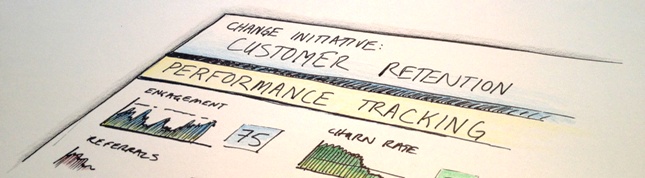 CHANGE INITIATIVE:
CUSTOMER RETENTION
PERFORMANCE TRACKING
ENGAGEMENT
75
CHURN RATE
REFERRALS